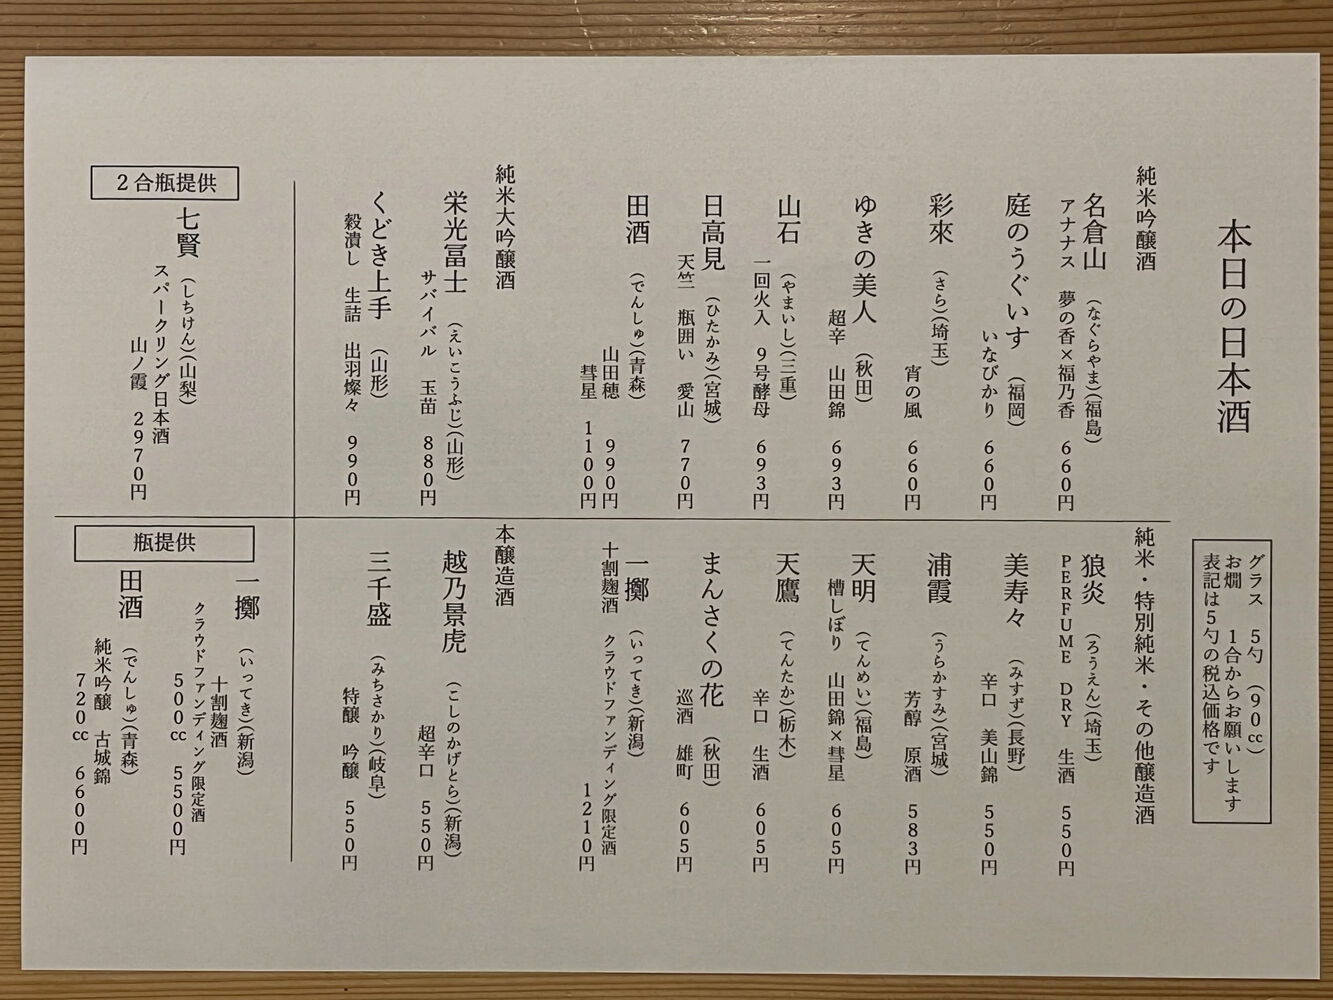 本日の日本酒
グラス　5勺　(90cc)
お燗　1合からお願いします
表記は5勺の税込価格です
純米吟醸酒
名倉山　(なぐらやま)(福島)
アナナス　夢の香×福乃香　660円
庭のうぐいす　(福岡)
いなびかり　660円
彩來　(さら)(埼玉)
宵の風　660円
ゆきの美人　(秋田)
超辛　山田錦　693円
山石　(やまいし)(三重)
一回火入　9号酵母　693円
日高見　(ひたかみ)(宮城)
天竺　瓶囲い　愛山　770円
田酒　(でんしゅ)(青森)
山田穂　990円
彗星　1100円
純米大吟醸酒
栄光冨士　(えいこうふじ)(山形)
サバイバル　玉苗　880円
くどき上手　(山形)
穀潰し　生詰　出羽燦々　990円
純米・特別純米・その他醸造酒
狼炎　(ろうえん)(埼玉)
PERFUME DRY　生酒　550円
美寿々　(みすず)(長野)
辛口　美山錦　550円
浦霞　(うらかすみ)(宮城)
芳醇　原酒　583円
天明　(てんめい)(福島)
槽しぼり　山田錦×彗星　605円
天鷹　(てんたか)(栃木)
辛口　生酒　605円
まんさくの花　(秋田)
巡酒　雄町　605円
一擲　(いってき)(新潟)
十割麹酒　クラウドファンディング限定酒
1210円
本醸造酒
越乃景虎　(こしのかげとら)(新潟)
超辛口　550円
三千盛　(みちさかり)(岐阜)
特醸　吟醸　550円
2合瓶提供
七賢　(しちけん)(山梨)
スパークリング日本酒
山ノ霞　2970円
瓶提供
一擲　(いってき)(新潟)
十割麹酒
クラウドファンディング限定酒
500cc　5500円
田酒　(でんしゅ)(青森)
純米吟醸　古城錦
720cc　6600円